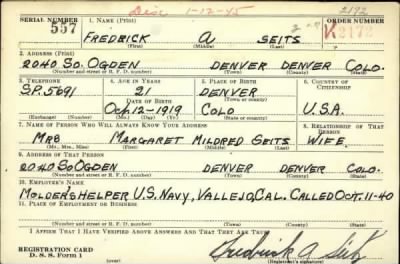 Disc 1-12-45 2192
SERIAL NUMBER 1. NAME (Print) ORDER NUMBER
557 FREDRICK A SEITS K2172
(First) (Middle) (Last)
2. ADDRESS (Print)
2040 SO. OGDEN DENVER DENVER COLO.
(Number and street or R. F. D. number) (Town) (County) (State)
3. TELEPHONE 4. AGE IN YEARS 5. PLACE OF BIRTH 6. COUNTRY OF CITIZENSHIP
S.P. 5691 21 DENVER
DATE OF BIRTH (Town or county)
OCT. 12-1919 COLO U.S.A.
(Exchange) (Number) (Mo.) (Day) (Yr.) (State or country)
7. NAME OF PERSON WHO WILL ALWAYS KNOW YOUR ADDRESS 8. RELATIONSHIP OF THAT PERSON
MRS MARGARET MILDRED SEITS WIFE
(Mr., Mrs., Miss) (First) (Middle) (Last)
9. ADDRESS OF THAT PERSON
2040 SO OGDEN DENVER DENVER COLO.
(Number and street or R. F. D. number) (Town) (County) (State)
10. EMPLOYER'S NAME
MOLDERS HELPER U.S. NAVY, VALLEJO, CAL. CALLED OCT. 11-40
11. PLACE OF EMPLOYMENT OR BUSINESS
(Number and street or R. F. D. number) (Town) (County) (State)
I AFFIRM THAT I HAVE VERIFIED ABOVE ANSWERS AND THAT THEY ARE TRUE.
REGISTRATION CARD
D. S. S. Form 1 Fredrick A. Seits
(Registrant's signature)